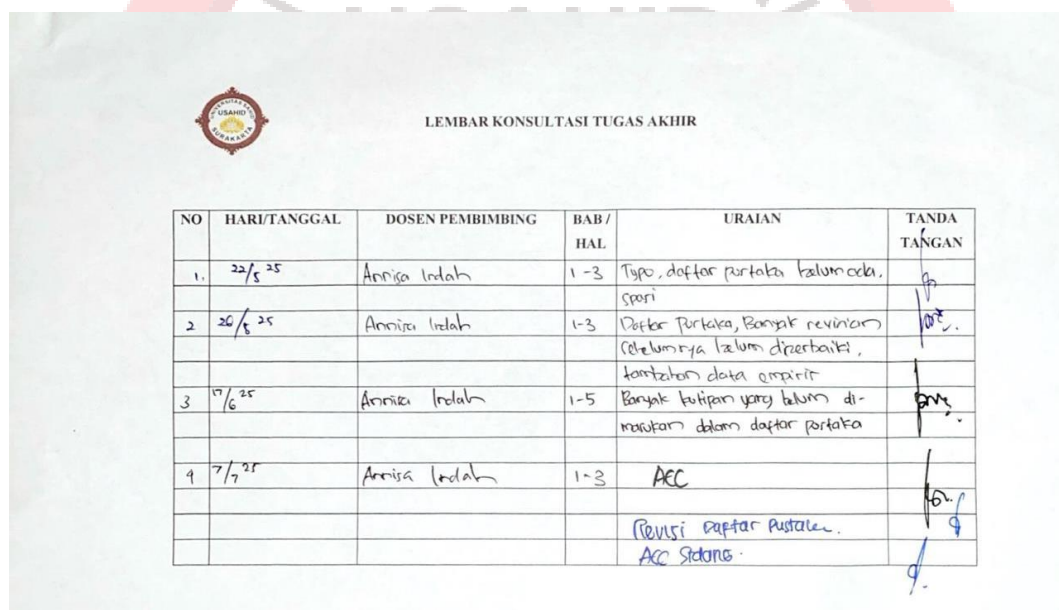 USAHID
UNIVERSITAS SAHID
USAHID
SURAKARTA
LEMBAR KONSULTASI TUGAS AKHIR
NO HARI/TANGGAL DOSEN PEMBIMBING BAB / HAL URAIAN TANDA TANGAN
1. 22/5 25 Annisa Indah 1-3 Typo, daftar pustaka belum ada,
spasi
2 26/5 25 Annisa Indah 1-3 Daftar Pustaka, Banyak revisian
sebelumnya belum diperbaiki,
tambahan data empiris
3 17/6 25 Annisa Indah 1-5 Banyak kutipan yang belum di-
masukan dalam daftar pustaka
4 7/7 25 Annisa Indah 1-3 ACC
Revisi Daftar Pustaka.
ACC Sidang.